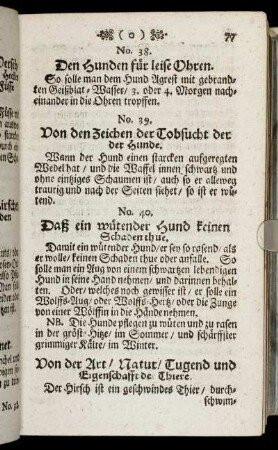 (0) 77
No. 38.
Den Hunden für leise Ohren.
So solle man dem Hund Agrest mit gebrand-
ten Geißblat / Wasser / 3. oder 4. Morgen nach-
einander in die Ohren tropffen.
No. 39.
Von den Zeichen der Tobsucht der
der Hunde.
Wann der Hund einen starcken auffgeregten
Wedel hat / und die Waffel innen schwartz und
ohne eintziges Schaumen ist / auch so er alleweg
traurig und nach der Seiten siehet / so ist er wü-
tend.
No. 40.
Daß ein wütender Hund keinen
Schaden thue,
Damit ein wütender Hund / er sey so rasend / als
er wolle / keinen Schaden thue oder anfalle. So
solle man ein Aug von einem schwartzen lebendigen
Hund in seine Hand nehmen / und darinnen behal-
ten. Oder / welches noch gewisser ist / er solle ein
Wolffs-Aug / oder Wolffs-Hertz / oder die Zunge
von einer Wölffin in die Hände nehmen.
NB. Die Hunde pflegen zu wüten und zu rasen
in der gröst-Hitze / im Sommer / und schärffster
grimmiger Kälte / im Winter.
Von der Art / Natur / Tugend und
Eigenschafft de Thiere.
Der Hirsch ist ein geschwindes Thier / durch-
schwim-